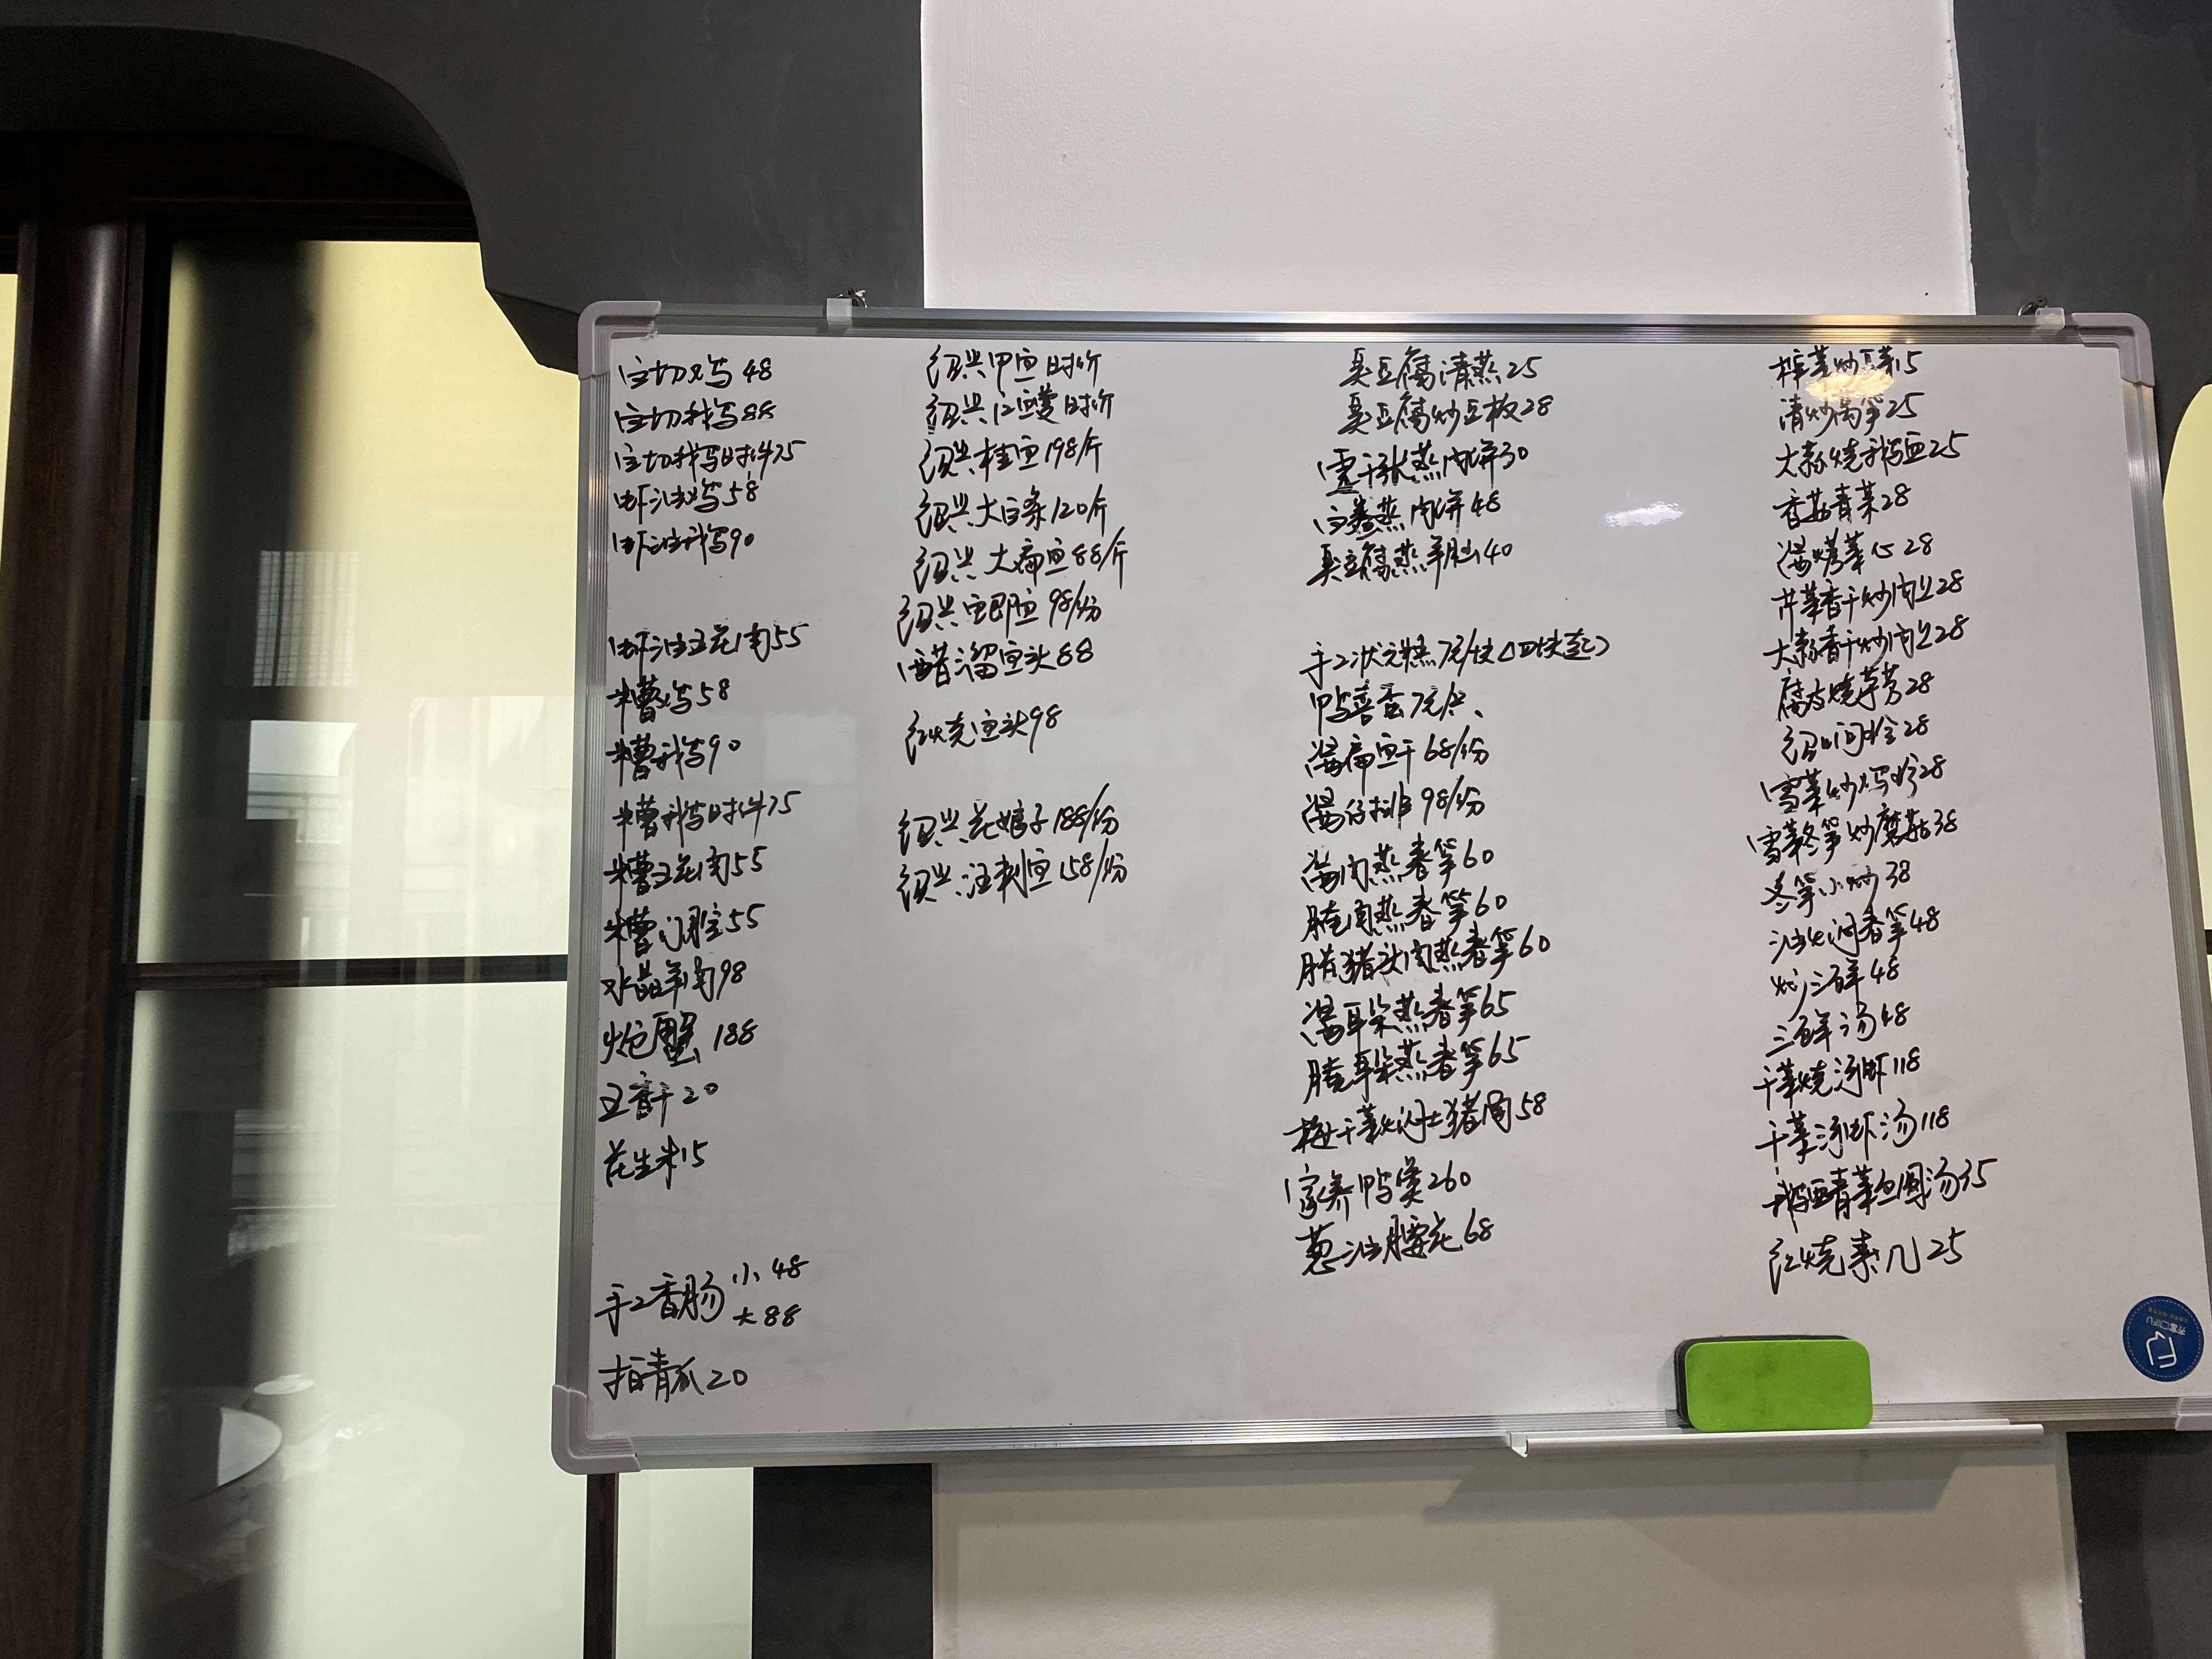 白切鸡 48
白切鹅 88
白切鹅时件75
虾油鸡58
虾油鹅90
虾油五花肉55
糟鸡58
糟鹅90
糟鹅时件75
糟五花肉55
糟门腔55
水晶羊肉98
炝蟹 188
豆香干20
花生米15
手工香肠 小 48
大 88
拍青瓜20
绍兴甲鱼时价
绍兴江鳗时价
绍兴桂鱼198/斤
绍兴大白条120/斤
绍兴大扁鱼88/斤
绍兴鱼 98/份
醋溜鱼头88
红烧鱼头98
绍兴花娘子188/份
绍兴汪刺鱼158/份
臭豆腐清蒸25
臭豆腐炒豆板28
霉千张蒸肉饼30
白鲞蒸肉饼48
臭豆腐蒸 40
手工状元糕7元/块(四块起)
鸭喜蛋7元/只
酱扁鱼干68/份
酱仔排98/份
酱肉蒸春笋60
腌肉蒸春笋60
腊猪头肉蒸春笋60
酱耳朵蒸春笋65
腌耳朵蒸春笋65
梅干菜焖土猪肉58
家养鸭煲260
葱油腰花68
榨菜炒豆芽15
清炒莴笋25
大蒜烧鹅血25
香菇青菜28
汤烤菜心28
芹菜香干炒肉丝28
大蒜香干炒肉丝28
腐皮烧芋艿28
绍 28
雪菜炒 28
雪菜冬笋炒蘑菇38
冬笋小炒38
油焖春笋48
炒三鲜48
三鲜汤48
干菜烧汤虾118
干菜汤虾汤118
鹅血青菜鱼圆汤35
红烧素几25